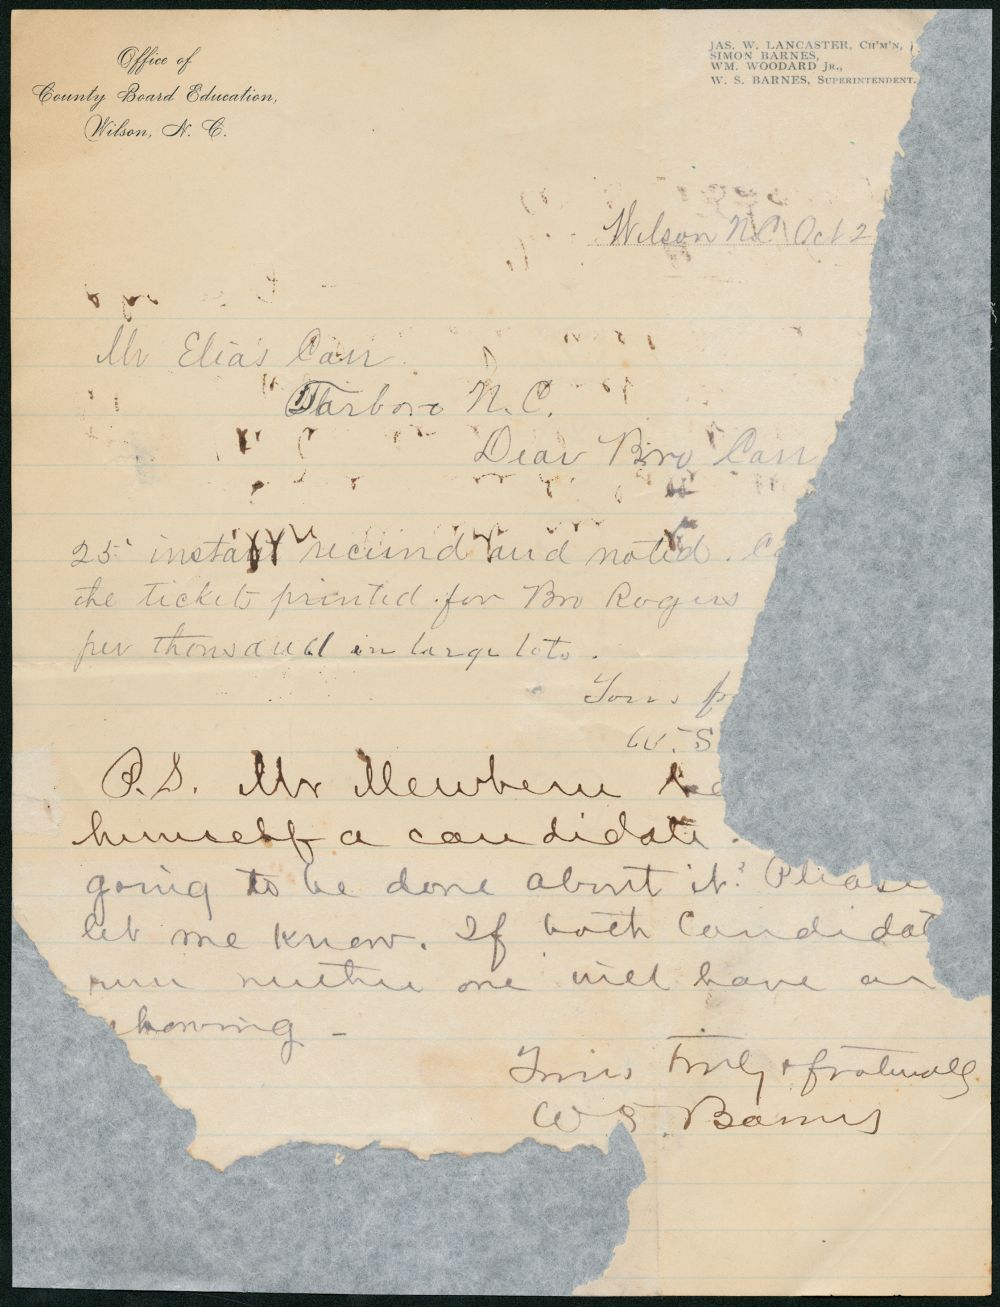 Office of
County Board Education,
Wilson, N. C.
JAS. W. LANCASTER, CH'M'N,
SIMON BARNES,
WM. WOODARD JR.,
W. S. BARNES, SUPERINTENDENT.
Wilson N.C. Oct 2
Mr Elias Carr.
Tarboro N.C.
Dear Bro Carr
25' instant received and noted.
the tickets printed for Bro Rogers
per thousand in large lots.
Yours
W. S
P.S. Mr Newbern
himself a candidate.
going to be done about it? Please
let me know. If both Candidat
run neither one will have an
showing -
Yours truly & fraternally
W S. Barnes